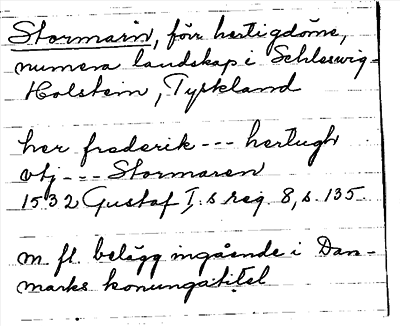 Stormarn, förr hertigdöme,
numera landskap i Schleswig-
Holstein, Tyskland
her frederik --- hertugh
vtj --- Stormaren
1532 Gustaf I:s reg. 8, s. 135
m. fl. belägg ingående i Dan-
marks konungatitel